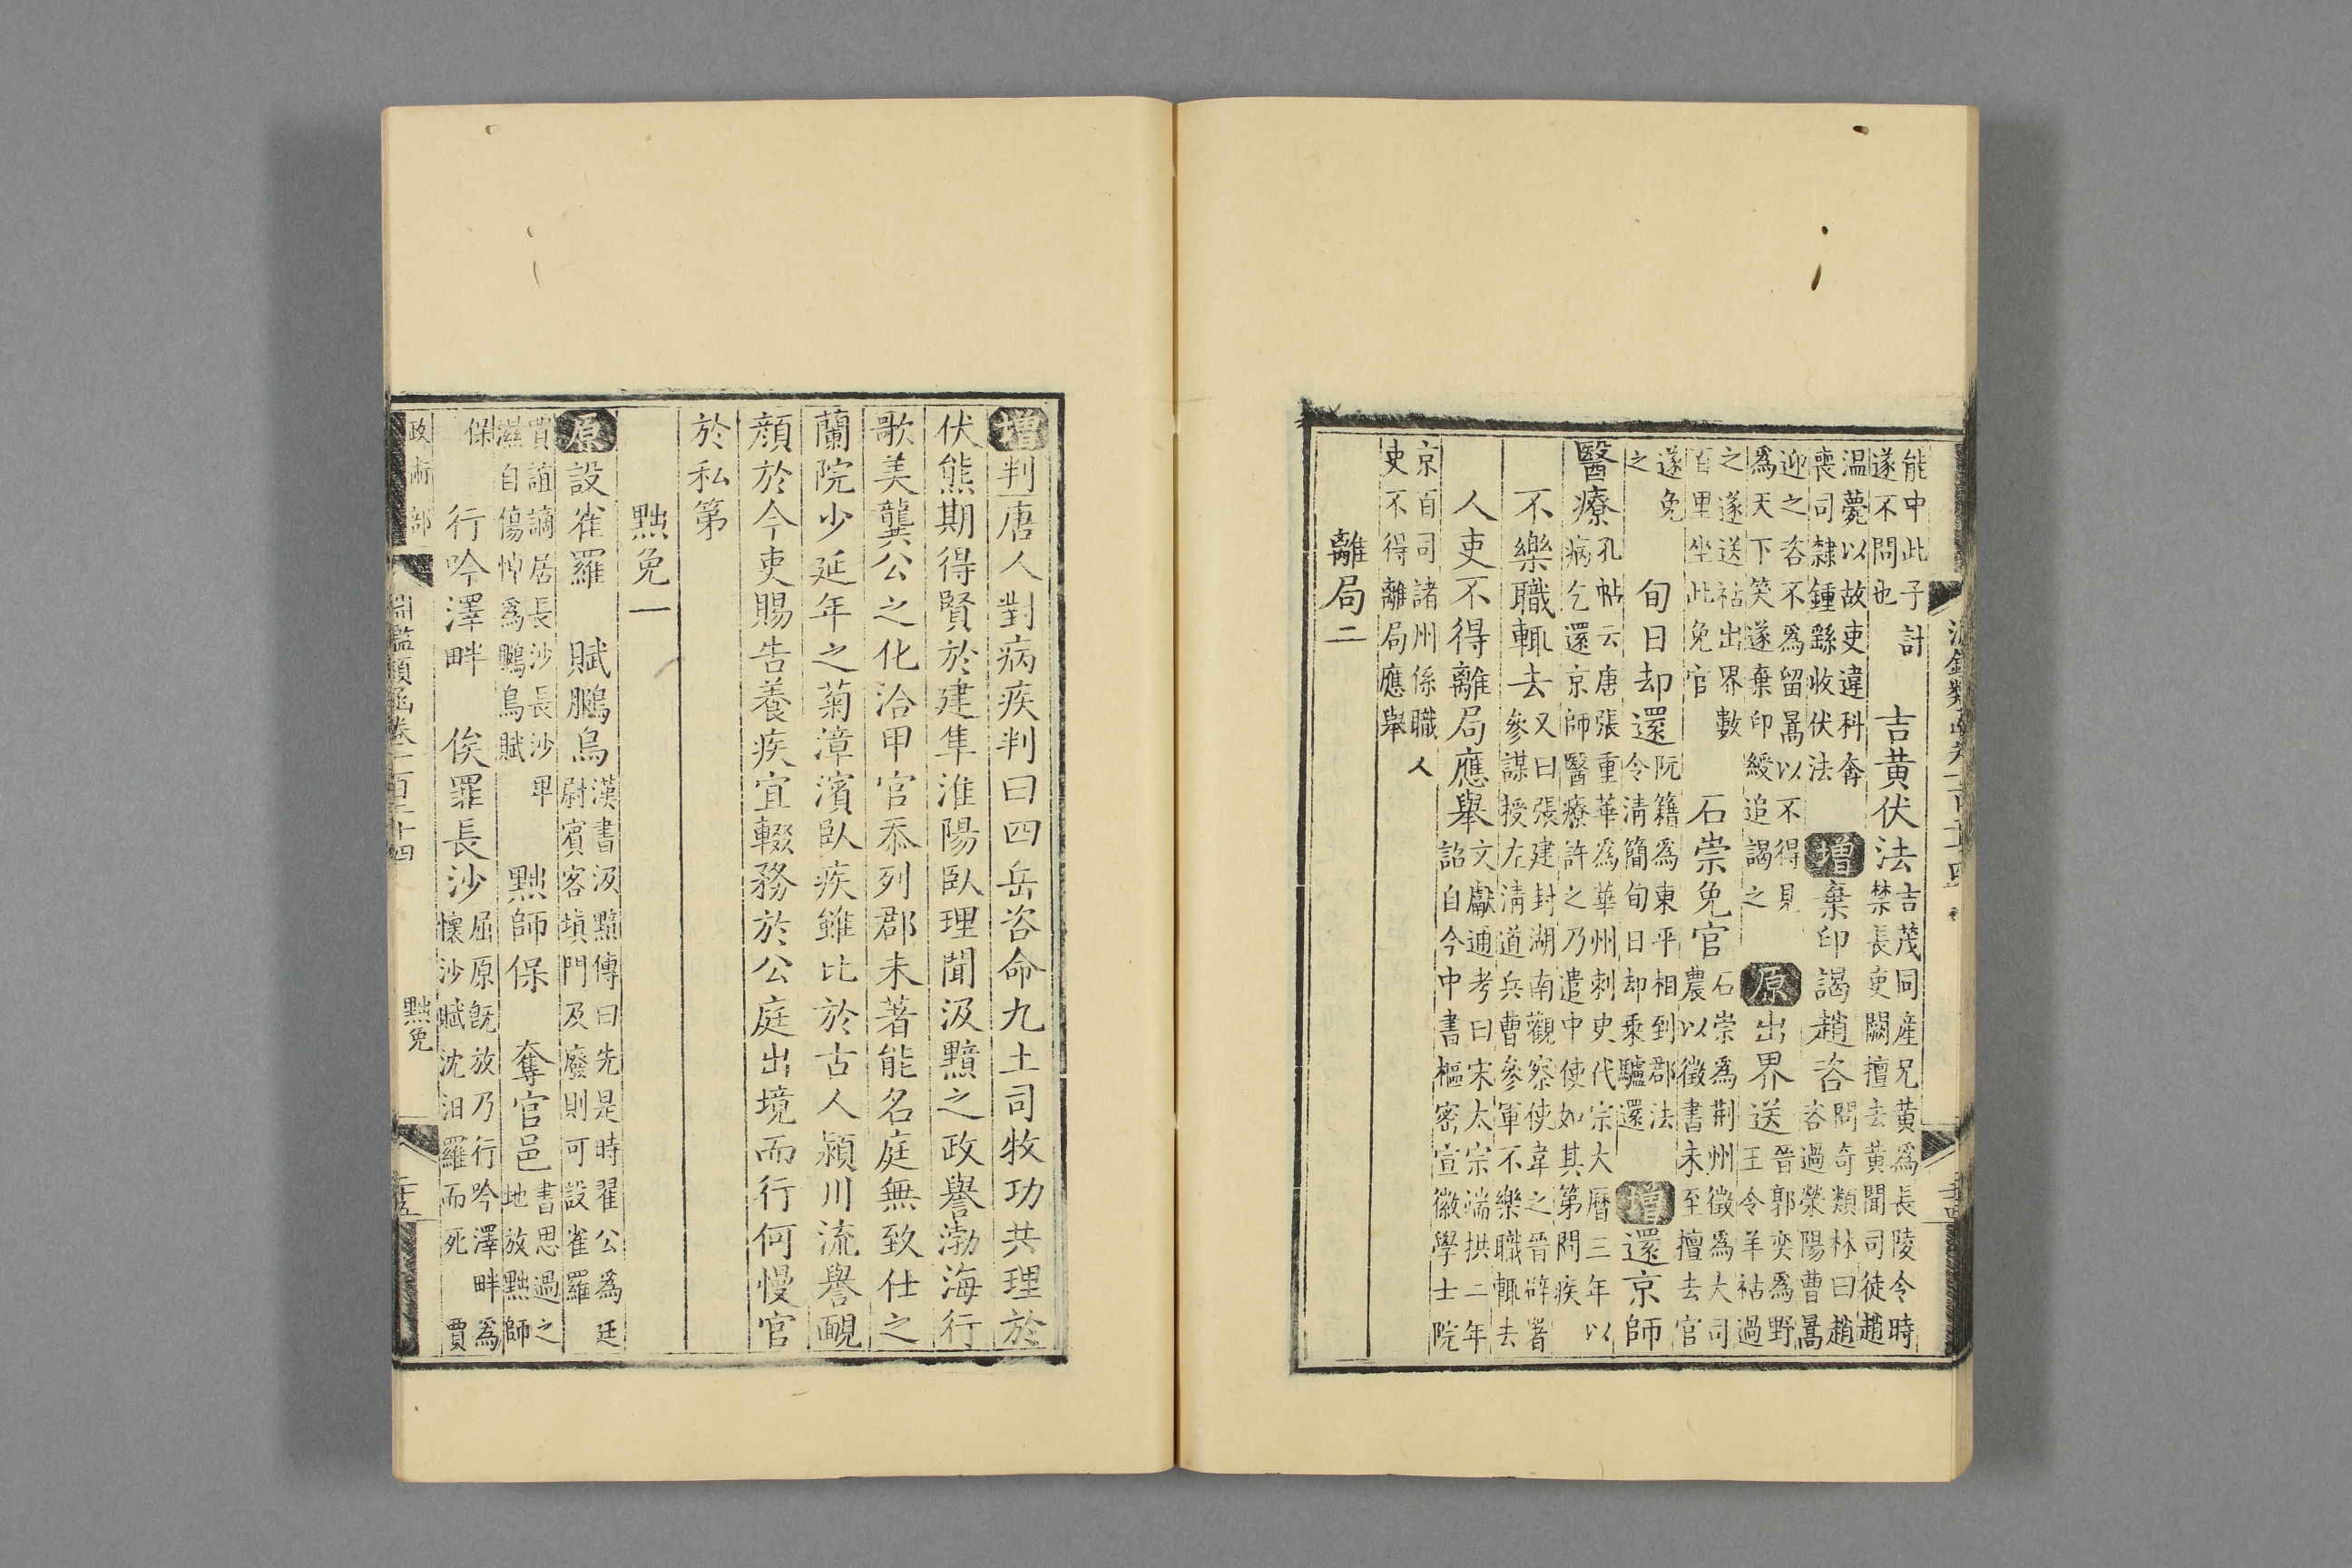 能中此子計
遂不問也
吉黄伏法
吉茂同産兄黄爲長陵令時
禁長吏闕擅去黄聞司徒趙
温薨以故吏違科奔
喪司隸鍾繇收伏法
增棄印謁趙咨
問奇類林曰趙
咨過滎陽曹暠
迎之咨不爲留暠以不得見
爲天下笑遂棄印綬追謁之
原出界送
晉郭奕爲野
王令羊祜過
之遂送祜出界數
百里坐此免官
石崇免官
石崇爲荆州徵爲大司
農以徵書未至擅去官
遂免
之
旬日却還
阮籍爲東平相到郡法
令清簡旬日却乘驢還
增還京師
醫療
孔帖云唐張重華爲華州刺史代宗大曆三年以
病乞還京師醫療許之乃遣中使如其第問疾
不樂職輒去
又曰張建封湖南觀察使韋之晉辟署
參謀授左清道兵曹參軍不樂職輒去
人吏不得離局應舉
文獻通考曰宋太宗端拱二年
詔自今中書樞密宣徽學士院
京百司諸州係職人
吏不得離局應舉
離局二
增判唐人對病疾判曰四岳咨命九土司牧功共理於
伏熊期得賢於建隼淮陽臥理聞汲黯之政譽渤海行
歌美龔公之化洽甲官忝列郡未著能名庭無致仕之
蘭院少延年之菊漳濱臥疾雖比於古人潁川流譽靦
顔於今吏賜告養疾宜輟務於公庭出境而行何慢官
於私第
黜免一
原設雀羅
賦鵩鳥
漢書汲黯傳曰先是時翟公爲廷
尉賓客塡門及廢則可設雀羅
賈誼謫居長沙長沙卑
濕自傷悼爲鵩鳥賦
黜師保
奪官邑
書思過之
地放黜師
保
行吟澤畔
俟罪長沙
屈原既放乃行吟澤畔爲
懷沙賦沈汨羅而死
賈
政術部
淵鑑類函卷一百二十四
黜免
二十五